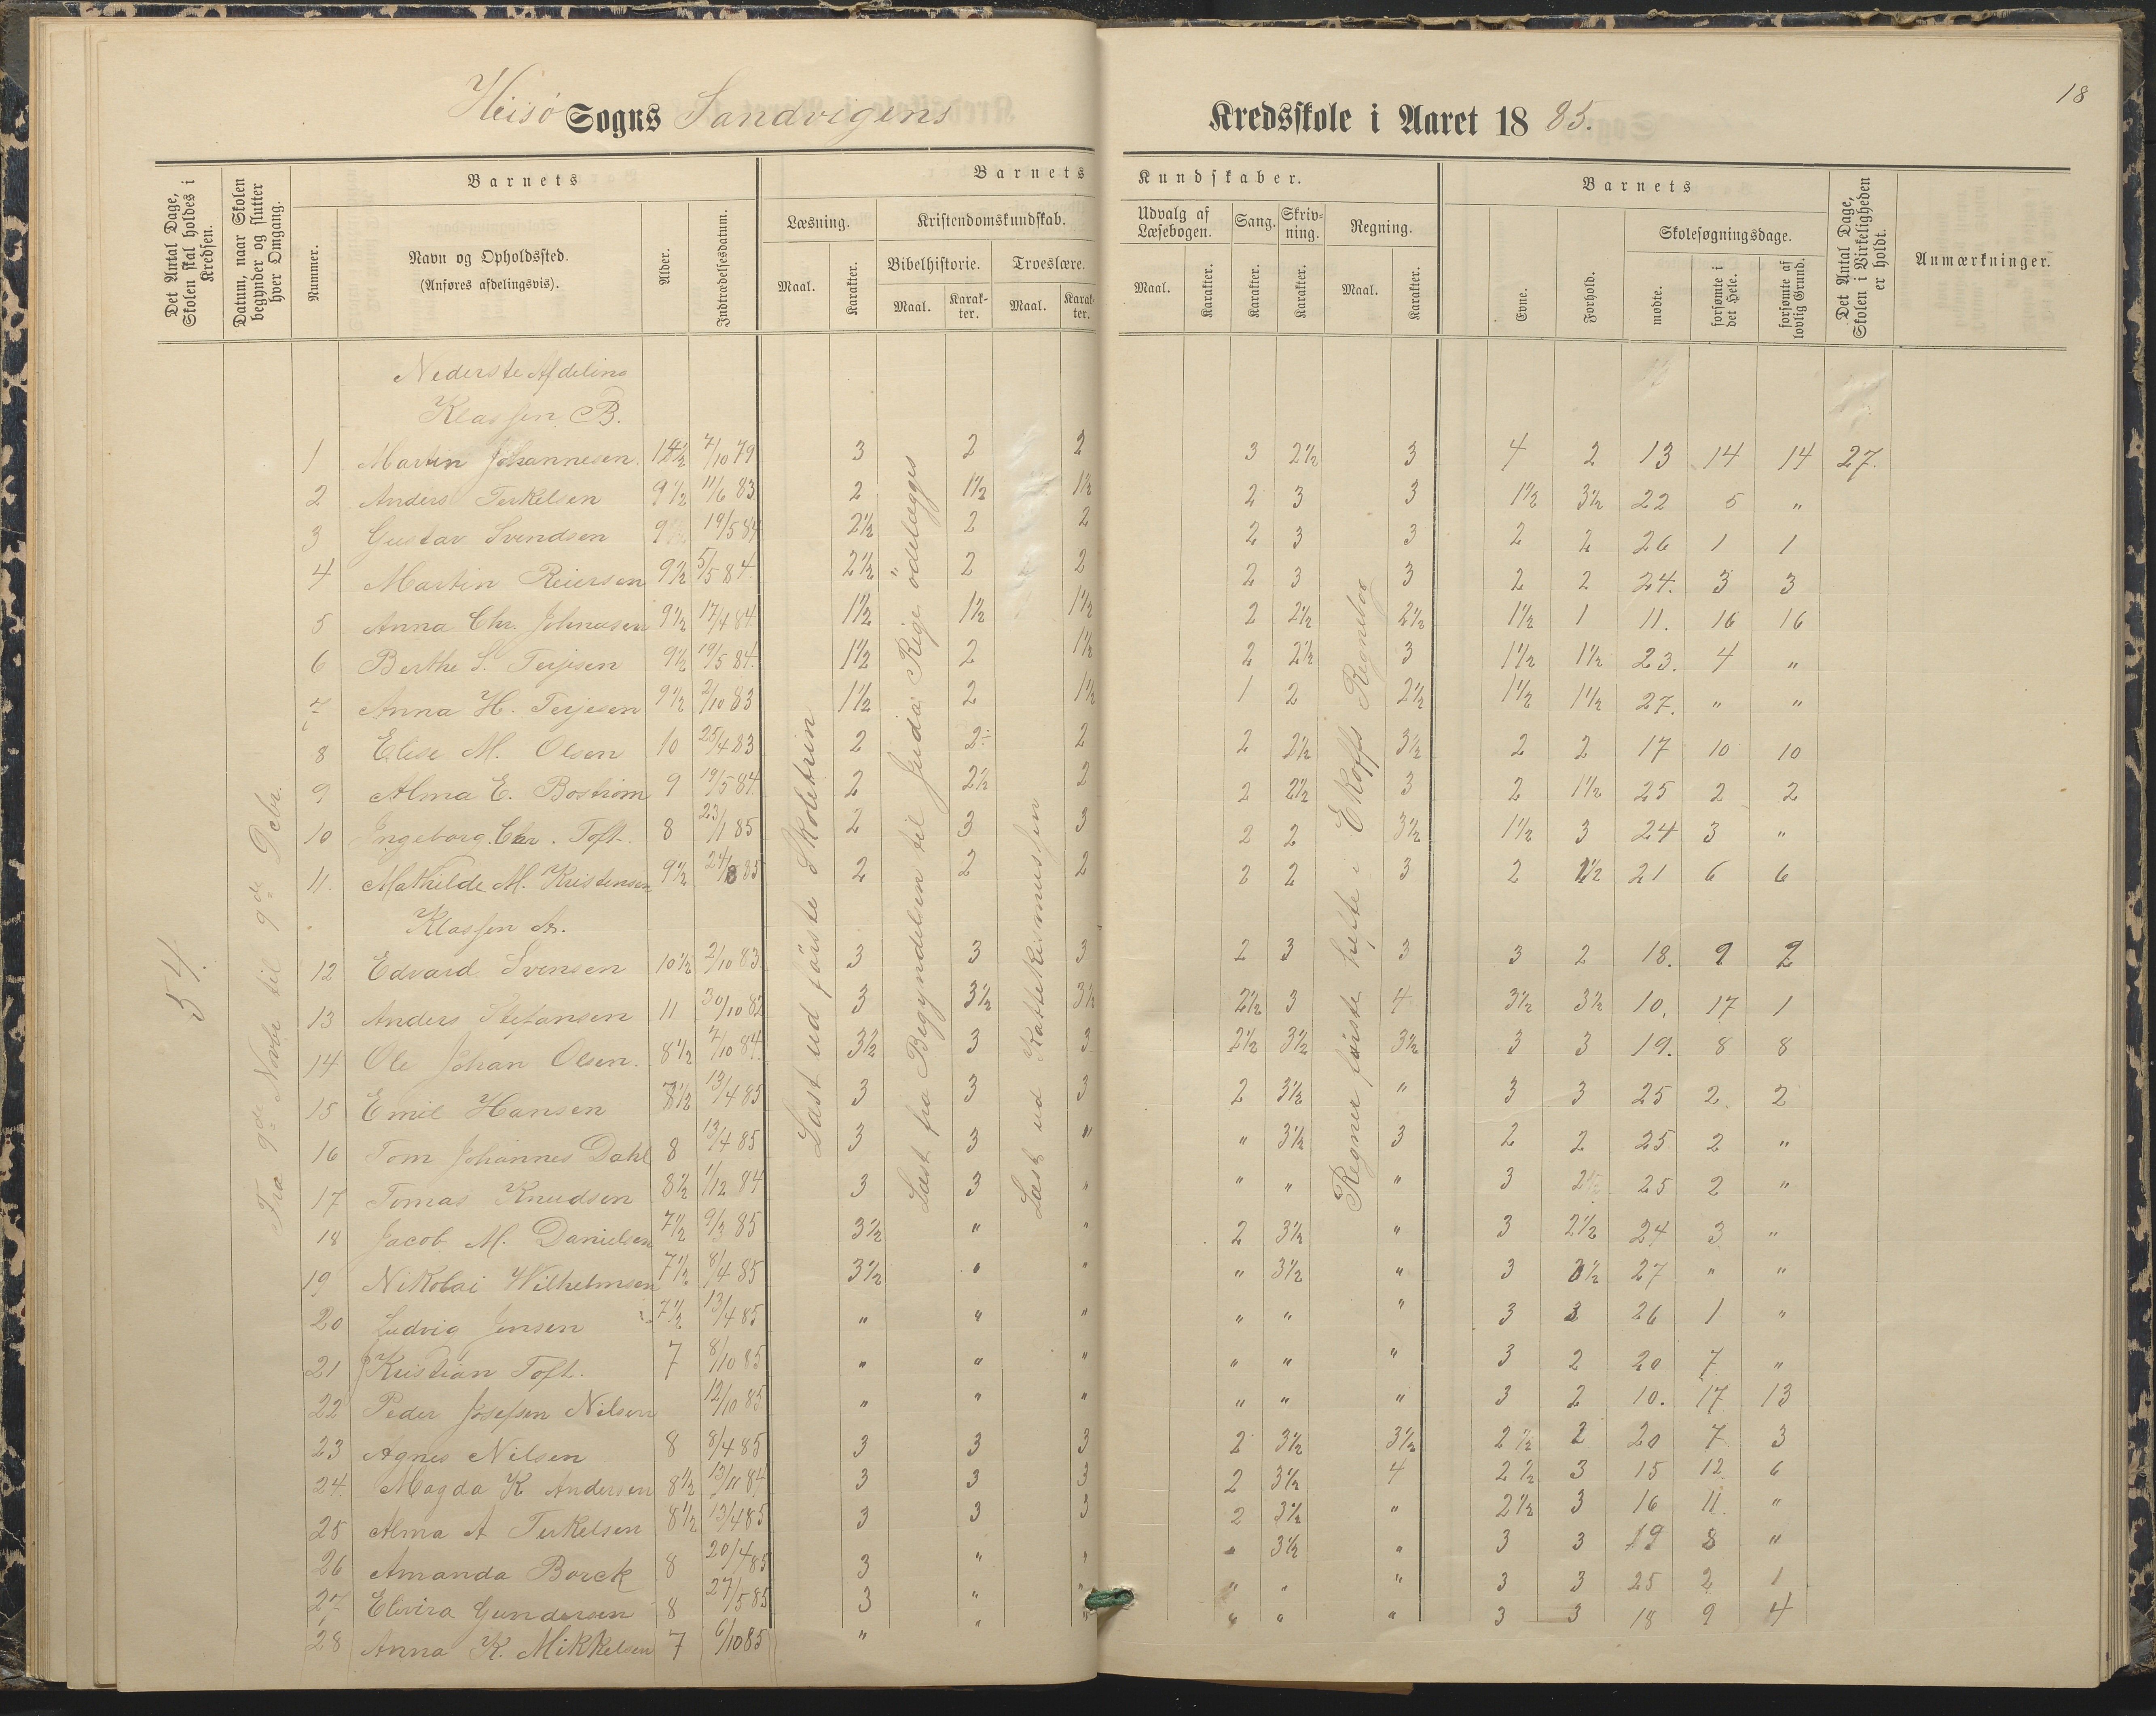 18
Heisö Sogns Sandvigens Kredsskole i Aaret 1885.
Det Antal Dage, Skolen skal holdes i Kredsen.
Datum, naar Skolen begynder og slutter hver Omgang.
Barnets
Nummer.
Navn og Opholdssted.
(Anføres afdelingsvis).
Alder.
Indtrædelsesdatum.
Barnets Kundskaber.
Læsning.
Maal.
Karakter.
Kristendomskundskab.
Bibelhistorie.
Maal.
Karakter.
Troeslære.
Maal.
Karakter.
Udvalg af Læsebogen.
Maal.
Karakter.
Sang.
Karakter.
Skrivning.
Karakter.
Regning.
Maal.
Karakter.
Barnets
Evne.
Forhold.
Skolesøgningsdage.
mødte.
forsømte i det Hele.
forsømte af lovlig Grund.
Det Antal Dage, Skolen i Virkeligheden er holdt.
Anmærkninger.
54.
Fra 9de Novbr til 9de Decbr.
Læst ud første Skoletrin
Læst fra Begyndelsen til Juda Rige ödelægges
Læst ud Kattekismussen
Regner første hefte i Ekoffs Regnebog
Nederste Afdeling
Klassen B.
1 Martin Johannesen. 7/10 79 3 2 2 3 2½ 3 4 2 13 14 14 27.
2 Anders Terkelsen 9½ 11/6 83 2 1½ 1½ 2 3 3 1½ 3½ 22 5 "
3 Gustav Svendsen 9 19/5 84 2½ 2 2 2 3 3 2 2 26 1 1
4 Martin Reiersen 9½ 5/5 84. 2½ 2 2 2 3 3 2 2 24. 3 3
5 Anna Chr. Johnasen 9½ 17/4 84. 1½ 1½ 1½ 2 2½ 2½ 1½ 1 11. 16 16
6 Berthe S. Terjesen 9½ 19/5 84. 1½ 2 1½ 2 2½ 3 1½ 1½ 23. 4 "
7 Anna H. Terjesen 9½ 2/10 83 1½ 2 1½ 1 2 2½ 1½ 1½ 27. " "
8 Elise M. Olsen 10 25/4 83 2 2÷ 2 2 2½ 3½ 2 2 17 10 10
9 Alma E. Bostrøm 9 19/5 84. 2 2½ 2 2 2½ 3 2 1½ 25 2 2
10 Ingeborg. Chr. Toft. 8 23/1 85 2 3 3 2 2 3½ 1½ 3 24 3 "
11. Mathilde M. Kristensen 9½ 24/8 85 2 2 2 2 2 3 2 1½ 21 6 6
Klassen A.
12 Edvard Svensen 10½ 2/10 83. 3 3 3 2 3 3 3 2 18. 9 2
13 Anders Stefansen 11 30/10 82 3 3½ 3½ 2½ 3 4 3½ 3½ 10. 17 1
14 Ole Johan Olsen. 8½ 7/10 84. 3½ 3 3 2½ 3½ 3½ 3 3 19. 8 8
15 Emil Hansen 8½ 13/4 85 3 3 3 2 3½ " 3 3 25 2 2
16 Tom Johannes Dahl 8 13/4 85 3 3 " " 3½ 3 2 2 25 2 "
17 Tomas Knudsen 8½ 1/12 84 3 3 " " " " 3 2½ 25 2 "
18 Jacob M. Danielsen 7½ 9/3 85 3½ " " 2 3½ " 3 2½ 24 3 "
19 Nikolai Wilhelmsen 7½ 8/4 85 3½ " " " 3½ " 3 3½ 27 " "
20 Ludvig Jensen 7½ 13/4 85 " " " " " " 3 3 26 1 "
21 Kristian Toft. 7 8/10 85 " " " " " " 3 2 20 7 "
22 Peder Josefsen Nilsen 12/10 85 " " " " " " 3 2 10. 17 13
23 Agnes Nilsen 8 8/4 85 3 3 3 2 3½ 3½ 2½ 2 20 7 3
24. Magda K Andersen 8½ 13/11 84 3 3 3 2 3½ 4 2½ 3 15 12 6
25 Alma A Terkelsen 8½ 13/4 85 3 3 3 2 3½ " 2½ 3 16 11. "
26 Amanda Borck 8 20/4 85 3 " " " 3½ " 3 3 19 8 "
27 Elvira Gundersen 8 27/5 85 3 " " " " " 3 3 25 2 1
28 Anna K. Mikkelsen 7 6/10 85 " " " " " " 3 3 18 9 4